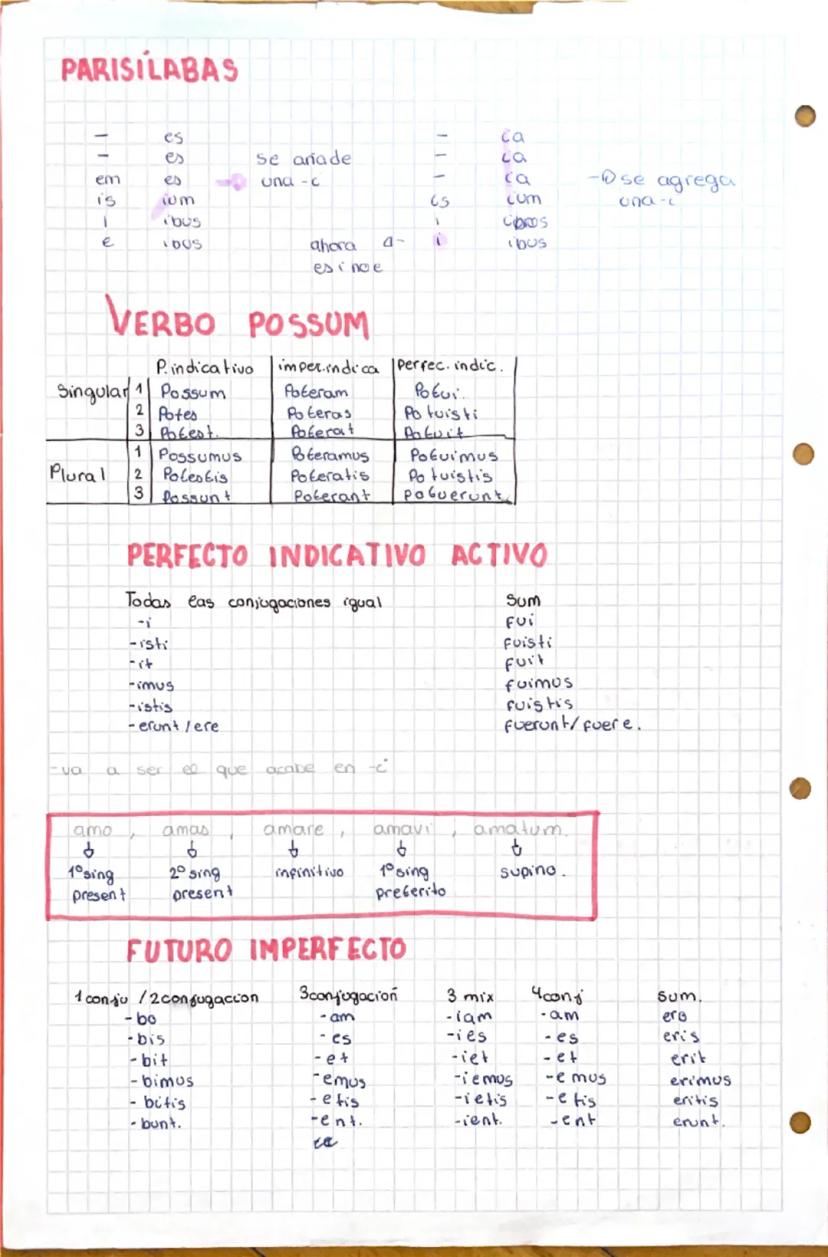 PARISÍLABAS
- es - ca
- es se añade - ca
em es una -c - ca -se agrega
is ium is cum una -c
i ibus i
e ibus ahora a- i ibus
es i no e
VERBO POSSUM
P.indicativo imper.indica perfec.indic.
Singular 1 Possum Poteram Potui.
2 Potes Poteras Potuisti
3 Potest. Poterat Potuit
Plural 1 Possumus Poteramus Potuimus
2 Potestis Poteratis Potuistis
3 Possunt Poterant potuerunt.
PERFECTO INDICATIVO ACTIVO
Todas las conjugaciones igual Sum
-i fui
-isti fuisti
-it fuit
-imus fuimus
-istis fuistis
-erunt/ere fuerunt/fuere.
-va a ser el que acabe en -i
amo, amas, amare, amavi, amatum.
1º sing 2º sing infinitivo 1º sing supino.
present present preterito
FUTURO IMPERFECTO
1 conju / 2 conjugacion 3 conjugación 3 mix 4 conj sum.
-bo -am -iam -am ero
-bis -es -ies -es eris
-bit -et -iet -et erit
-bimus -emus -iemus -emus erimus
-bitis -etis -ietis -etis eritis
-bunt. -ent. -ient. -ent erunt.